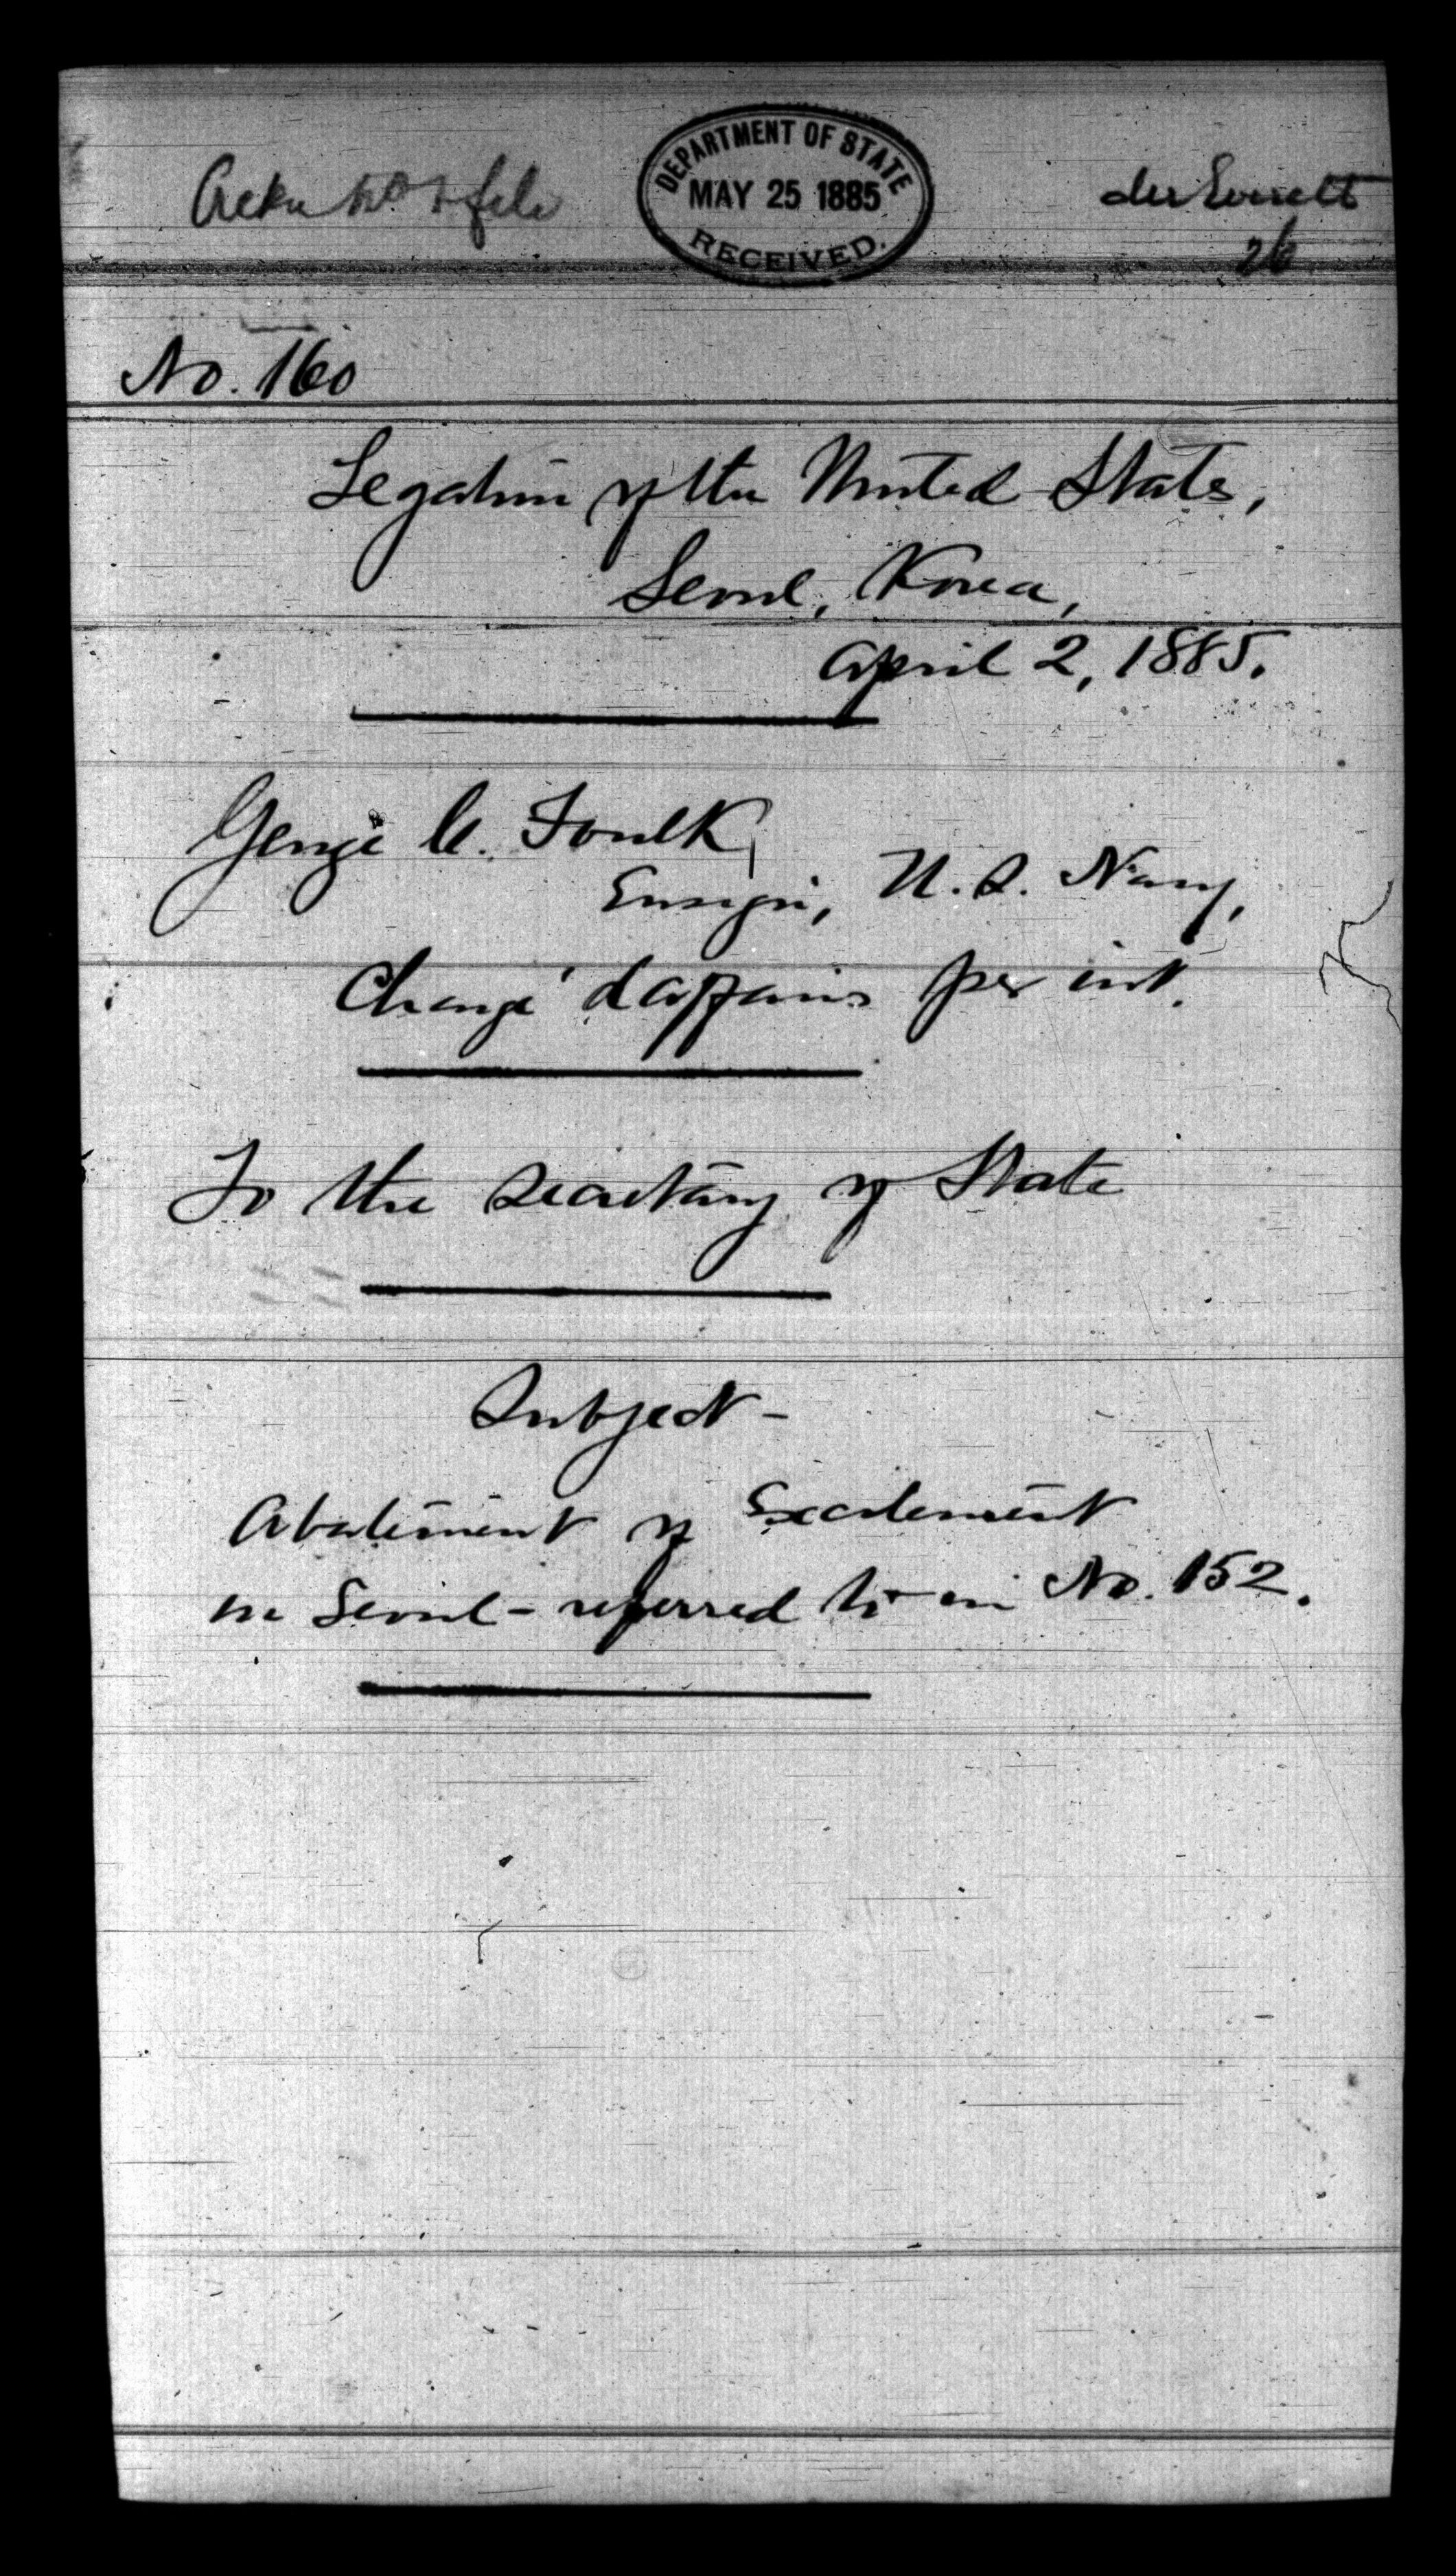 DEPARTMENT OF STATE
MAY 25 1885
RECEIVED.
file
26
No. 160
Legation of the United States,
Seoul, Korea,
April 2, 1885.
George C. Foulk,
Ensign, U. S. Navy,
Chargé d'affaires per int.
To the Secretary of State
Subject -
Abatement of Excitement
in Seoul - referred to in No. 152.